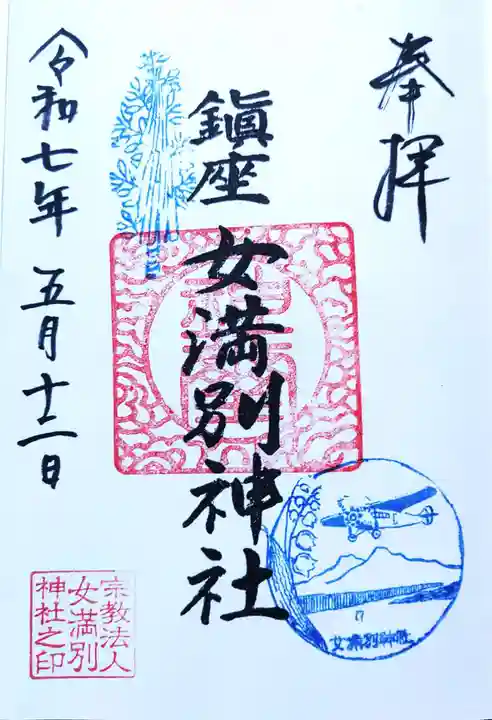 奉拝
鎮座
女満別神社
令和七年 五月十二日
宗教法人
女満別
神社之印
女満別神社